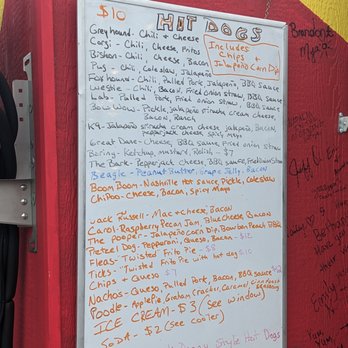 $10
HOT DOGS
Greyhound - Chili + Cheese
Corgi - Chili, Cheese, Fritos
Bishon - Chili, Cheese, Bacon
Pug - Chili, Coleslaw, Jalapeño
Includes
Chips +
Jalapeño Corn Dip
Foxhound - Chili, Pulled Pork, Jalapeño, BBQ Sauce
Westie - Chili, Bacon, Fried onion straw, BBQ sauce
Lab - Pulled Pork, Fried onion straw, BBQ sauce
Bow Wow - Pickle, Jalapeño sriracha cream cheese,
Bacon, Ranch
K9 - Jalapeño sriracha cream cheese, jalapeño, Bacon,
pepperjack cheese, spicy mayo
Great Dane - Cheese, BBQ sauce, Fried onion straw
Boring - Ketchup, mustard, Relish
The Bark - Pepperjack cheese, BBQ sauce, Fried Onion Straw
Beagle - Peanut Butter, Grape Jelly, Bacon
Boom Boom - Nashville Hot Sauce, Pickle, Coleslaw
ChiPoo - Cheese, Bacon, Spicy Mayo
Jack Russell - Mac + Cheese, Bacon
Carol - Raspberry Pecan Jam, Blue Cheese, Bacon
The Pooper - Jalapeño Corn Dip, Bourbon Peach BBQ
Pretzel Dog - Pepperoni, Queso, Bacon - $12
Fleas - Twisted Frito Pie - $8
Ticks - Twisted Frito Pie with hot dog $10
Chips + Queso $7
Nachos - Queso, Pulled Pork, Bacon, BBQ Sauce $12
Poodle - Apple Pie, Graham Cracker, Caramel,
ICE CREAM - $3 (see window)
SODA - $2 (see cooler)
Hot Dogs
Brandon